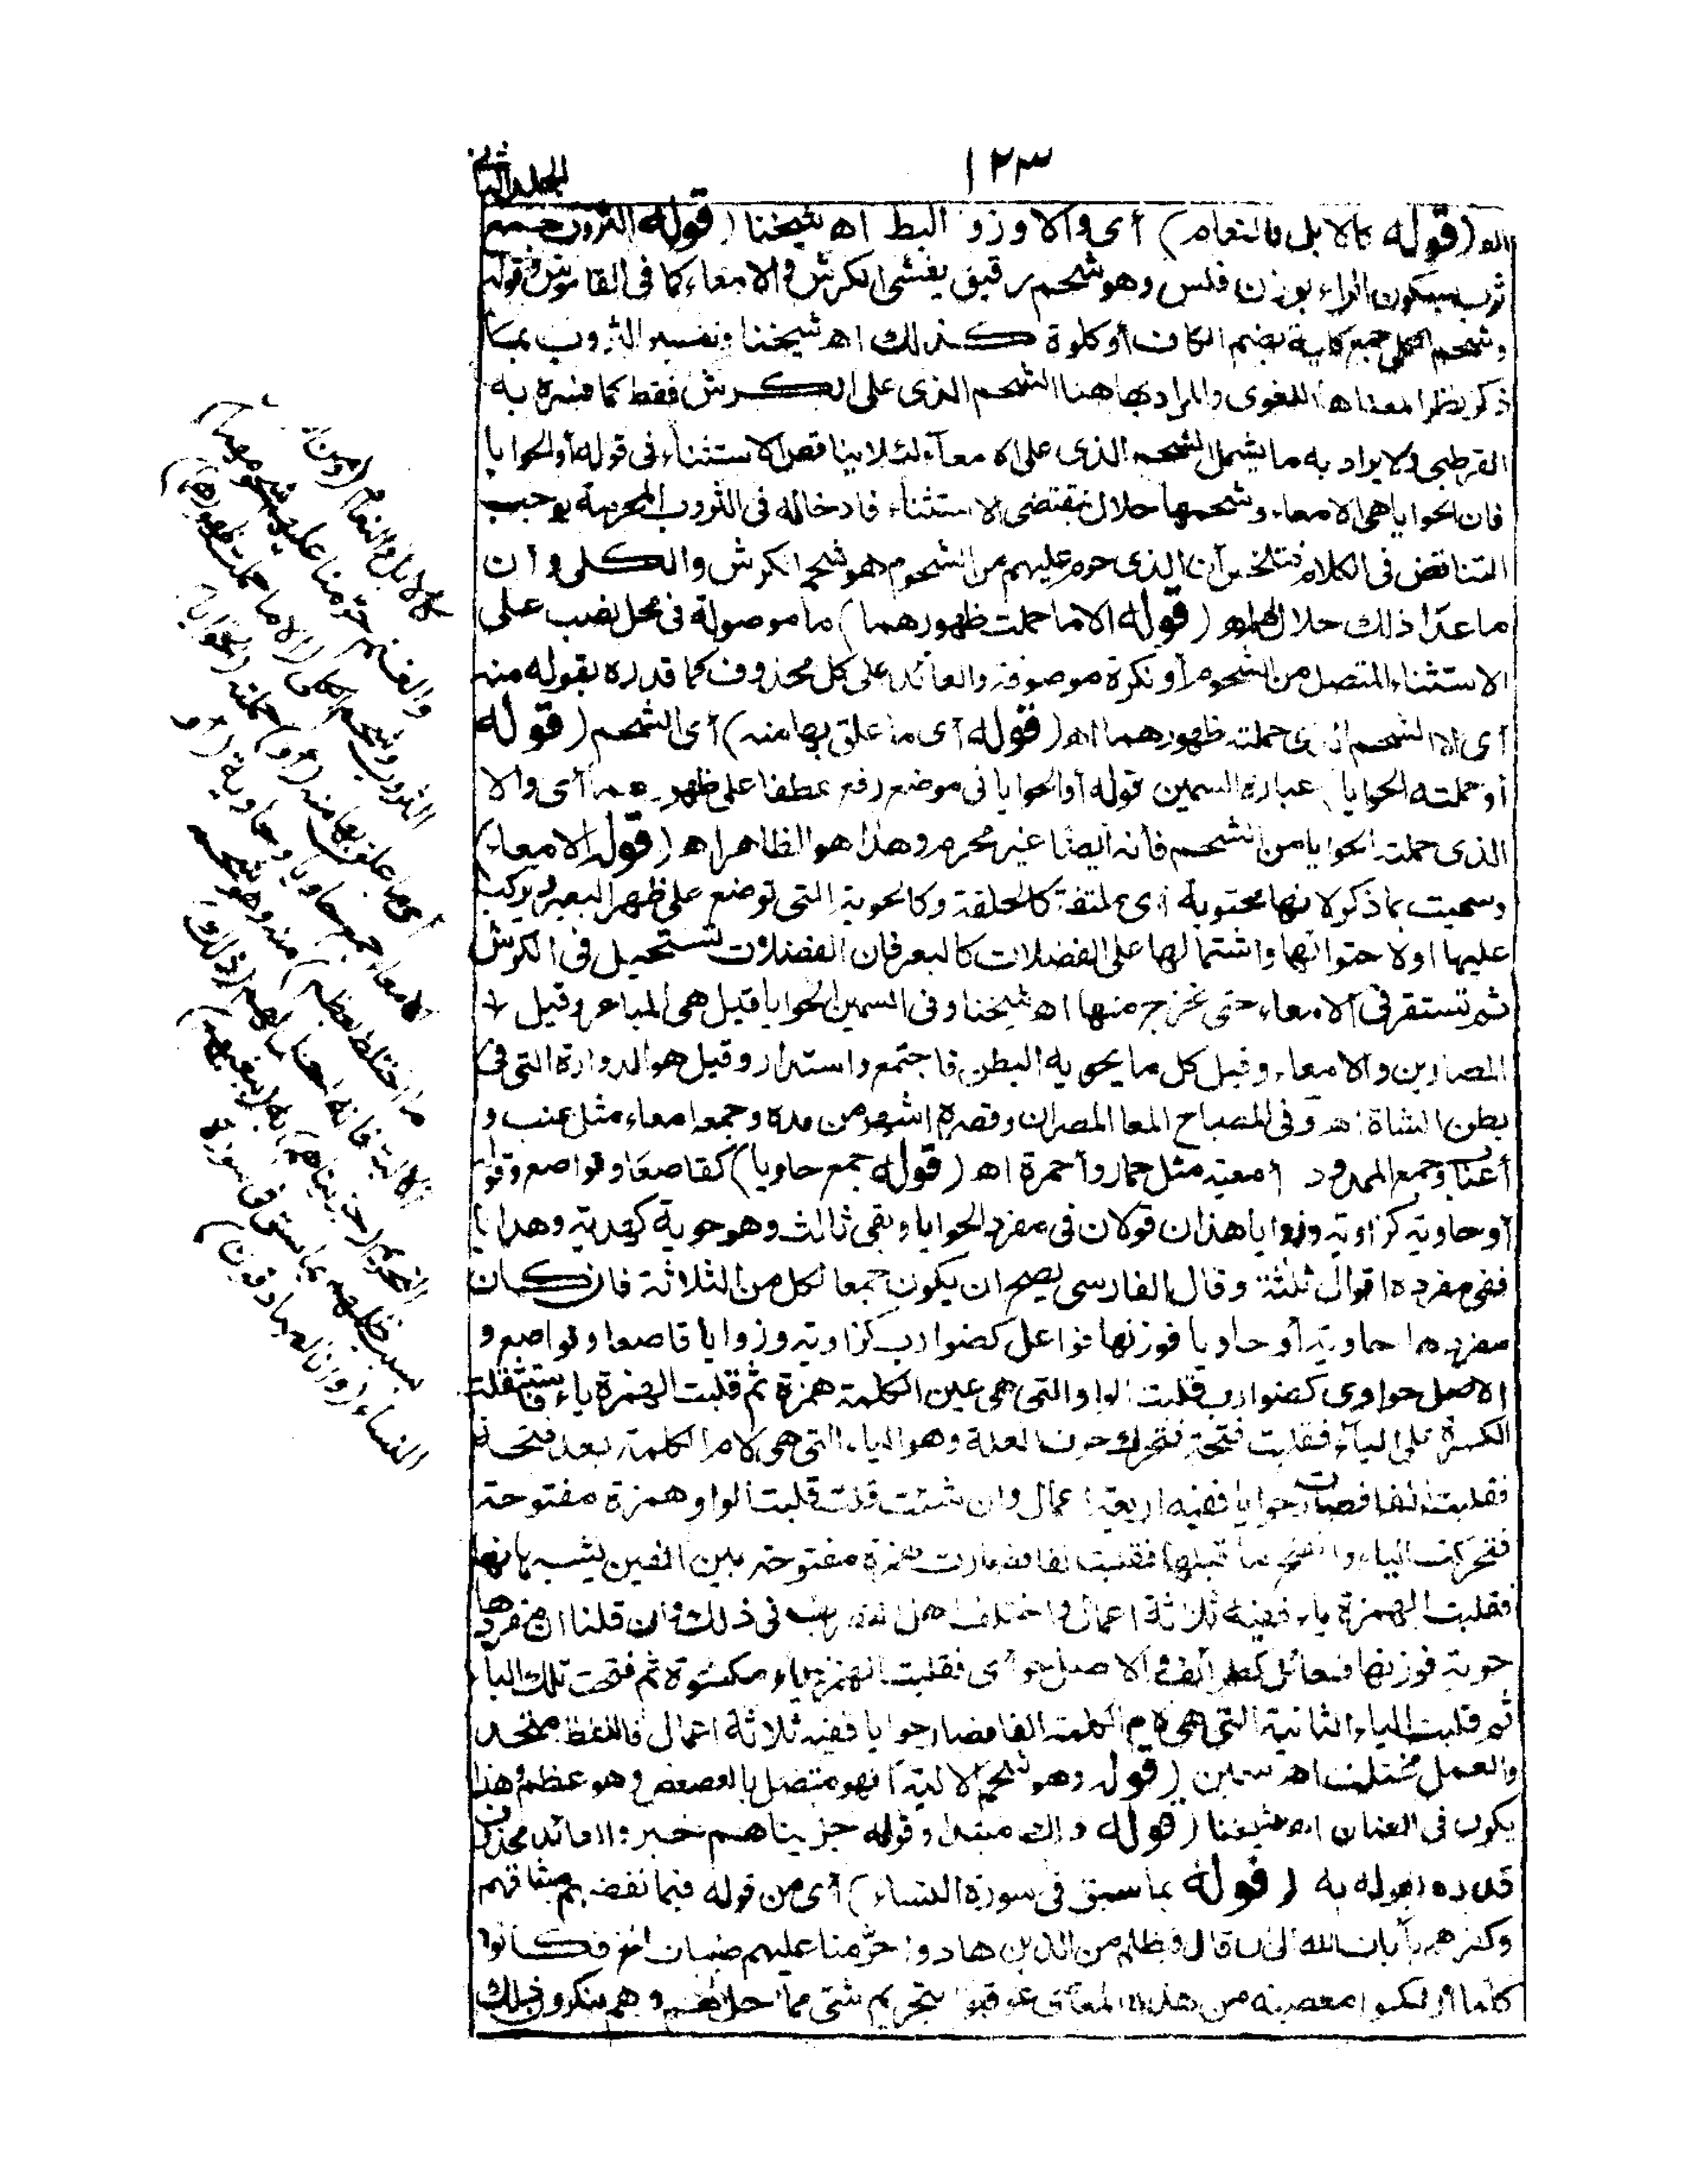 ١٢٣
الجلد الثاني
(قوله كالابل والنعام) أى والاوز والبط اه شيخنا (قوله الثروب جمع
ثرب بسكون الراء بوزن فلس وهو شحم رقيق يغشى الكرش والامعاء كما فى القاموس وقوله
وشحم الكلى جمع كلية بضم الكاف أو كلوة كذلك اه شيخنا وتفسير الثروب بما
ذكر نظرا لمعناها اللغوى والمراد بها هنا الشحم الذى على الكرش فقط كما فسره به
القرطبى ولا يراد به ما يشمل الشحم الذى على الامعاء لئلا يناقض الاستثناء فى قوله أو الحوايا
فان الحوايا هى الامعاء وشحمها حلال بمقتضى الاستثناء فادخاله فى الثروب المحرمة يوجب
التناقض فى الكلام فتلخص أن الذى حرم عليهم من الشحوم هو شحم الكرش والكلى وأن
ما عدا ذلك حلال لهم اه (قوله الا ما حملت ظهورهما) ما موصولة فى محل نصب على
الاستثناء المتصل من الشحوم أو نكرة موصوفة والعائد على كل محذوف كما قدره بقوله منه
أى الا الشحم الذى حملته ظهورهما اه (قوله أى ما علق بها منه) أى الشحم (قوله
أو حملته الحوايا) عبارة السمين قوله أو الحوايا فى موضع رفع عطفا على ظهورهما أى والا
الذى حملته الحوايا من الشحم فأنه أيضا غير محرم وهذا هو الظاهر اه (قوله الامعاء)
وسميت بما ذكر لانها محتوية أى ملتفة كالحلقة وكالحوية التى توضع على ظهر البعير يركب
عليها أو لاحتوائها واشتمالها على الفضلات كالبعر فان الفضلات تستحيل فى الكرش
ثم تستقر فى الامعاء حتى تخرج منها اه شيخنا وفى السمين الحوايا قيل هى المباعر وقيل
المصارين والامعاء وقيل كل ما يحويه البطن فاجتمع واستدار وقيل هو الدوارة التى فى
بطن الشاة اه وفى المصباح المعا المصران وقصره اشهر من مده وجمعه امعاء مثل عنب و
أعناب وجمع الممدود أمعية مثل حمار وأحمرة اه (قوله جمع حاويا) كقاصعا وقواصع وقوله
أو حاوية كزاوية وزوايا هذان قولان فى مفرد الحوايا وبقى ثالث وهو حوية كهدية وهدايا
ففى مفرده اقوال ثلثة وقال الفارسى يصح ان يكون جمعا لكل من الثلاثة فان كان
مفردها حاوية أو حاويا فوزنها فواعل كضوارب كزاوية وزوايا قاصعا وقواصع و
الاصل حواوى كضوارب قلبت الواو التى هى عين الكلمة همزة ثم قلبت الهمزة ياء فاستثقلت
الكسرة على الياء فقلبت فتحة فتحرك حرف العلة وهو الياء التى هى لام الكلمة بعد فتحة
فقلبت الفا فصارت حوايا ففيه اربعة اعمال وان شئت قلت قلبت الواو همزة مفتوحة
فتحركت الياء وانفتح ما قبلها فقلبت الفا فصارت همزة مفتوحة بين الفين يشبهانها
فقلبت الهمزة ياء ففيه ثلاثة اعمال واختلف اهل التصريف فى ذلك وان قلنا ان مفردها
حوية فوزنها فعائل كطرائف والاصل حوائى فقلبت الهمزة ياء مكسورة ثم فتحت تلك الياء
ثم قلبت الياء الثانية التى هى لام الكلمة الفا فصار حوايا ففيه ثلاثة اعمال فاللفظ متحد
والعمل مختلف اه سمين (قوله وهو شحم الالية) فهو متصل بالعصعص وهو عظم وهذا
يكون فى الضان اه شيخنا (قوله ذلك مبتدا وقوله جزيناهم خبر والعائد محذوف
قدره بقوله به (قوله بما سبق فى سورة النساء) أى من قوله فبما نقضهم ميثاقهم
وكفرهم بآيات الله الى ان قال فبظلم من الذين هادوا حرمنا عليهم طيبات الخ فكانوا
كلما ارتكبوا معصية من هذه المعاصى عوقبوا بتحريم شئ مما حل لهم وهم ينكرون ذلك
كالابل والنعام (ومن
والغنم حرمنا عليهم شحومهما)
الثروب وشحم الكلى (الا ما حملت ظهورهما)
أى ما علق بها منه (أو) حملته (الحوايا)
الامعاء جمع حاويا وحاوية (أو
ما اختلط بعظم) منه وهو شحم
الالية فانه احل لهم (ذلك)
التحريم (جزيناهم) به (ببغيهم)
بسبب ظلمهم بما سبق فى سورة
النساء (وانا لصادقون)